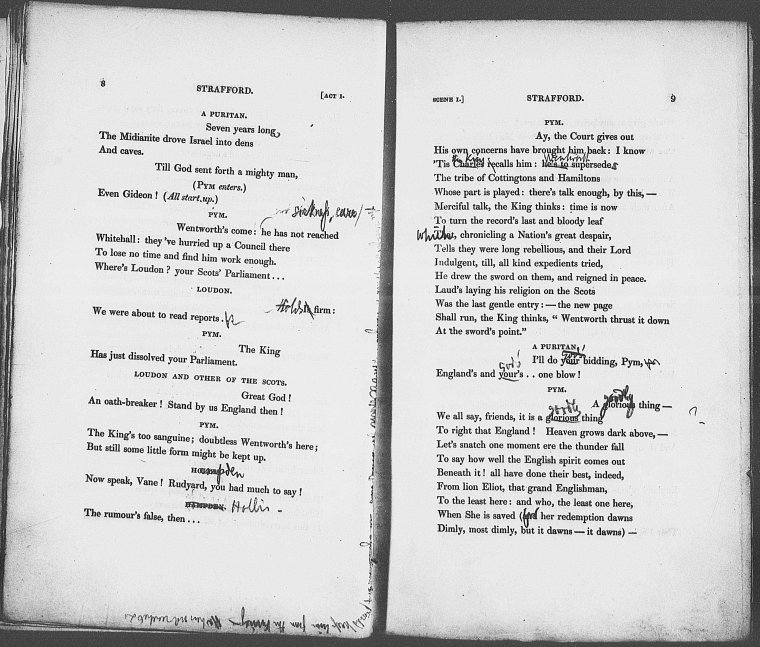 8
STRAFFORD.
[ACT I.
A PURITAN.
Seven years long,
The Midianite drove Israel into dens
And caves.
Till God sent forth a mighty man,
(PYM enters.)
Even Gideon! (All start up.)
PYM.
sickness, caves/
Wentworth's come: he has not reached
Whitehall: they've hurried up a Council there
To lose no time and find him work enough.
Where's Loudon? your Scots' Parliament...
LOUDON.
Holds firm:
We were about to read reports.
PYM.
The King
Has just dissolved your Parliament.
LOUDON AND OTHER OF THE SCOTS.
Great God!
An oath-breaker! Stand by us England then!
PYM.
The King's too sanguine; doubtless Wentworth's here;
But still some little form might be kept up.
Hampden
Now speak, Vane! Rudyard, you had much to say!
HAMPDEN. Hollis -
The rumour's false, then...
SCENE I.]
STRAFFORD.
9
PYM.
Ay, the Court gives out
His own concerns have brought him back: I know
the King Wentworth
'Tis Charles recalls him: he's to supersede
The tribe of Cottingtons and Hamiltons
Whose part is played: there's talk enough, by this,—
Merciful talk, the King thinks: time is now
To turn the record's last and bloody leaf
which, chronicling a Nation's great despair,
Tells they were long rebellious, and their Lord
Indulgent, till, all kind expedients tried,
He drew the sword on them, and reigned in peace.
Laud's laying his religion on the Scots
Was the last gentle entry:—the new page
Shall run, the King thinks, "Wentworth thrust it down
At the sword's point."
A PURITAN.
God's
I'll do your bidding, Pym,
God's
England's and your's.. one blow!
PYM.
goodly
A glorious thing—
goodly
We all say, friends, it is a glorious thing
To right that England! Heaven grows dark above,—
Let's snatch one moment ere the thunder fall
To say how well the English spirit comes out
Beneath it! all have done their best, indeed,
From lion Eliot, that grand Englishman,
To the least here: and who, the least one here,
When She is saved (for her redemption dawns
Dimly, most dimly, but it dawns—it dawns)—